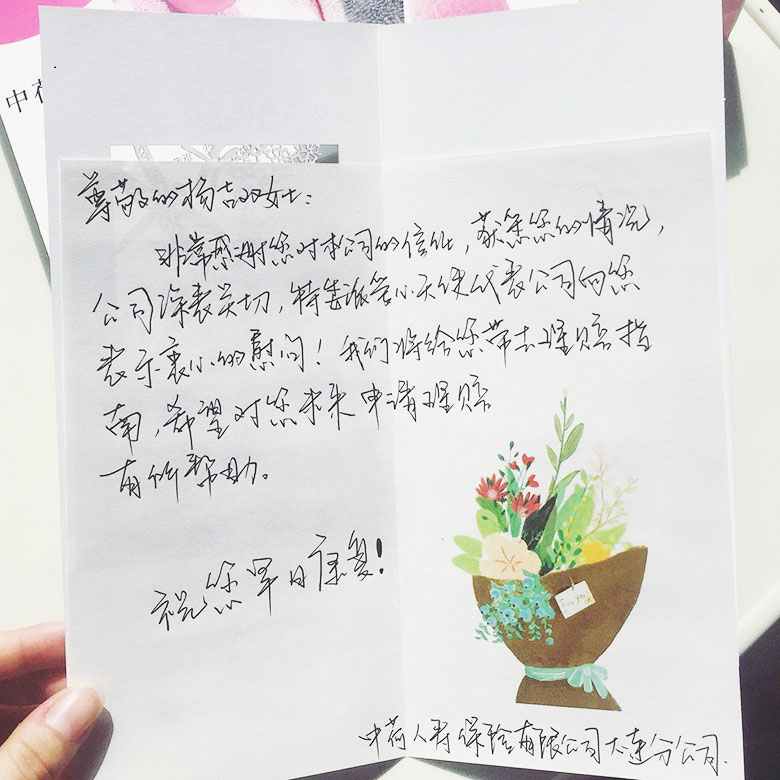 中荷
尊敬的杨吉双女士：
非常感谢您对本公司的信任，获悉您的情况，
公司深表关切，特委派爱心天使代表公司向您
表示衷心的慰问！我们将给您带去理赔指
南，希望对您未来申请理赔
有所帮助。
祝您早日康复！
中荷人寿保险有限公司大连分公司.